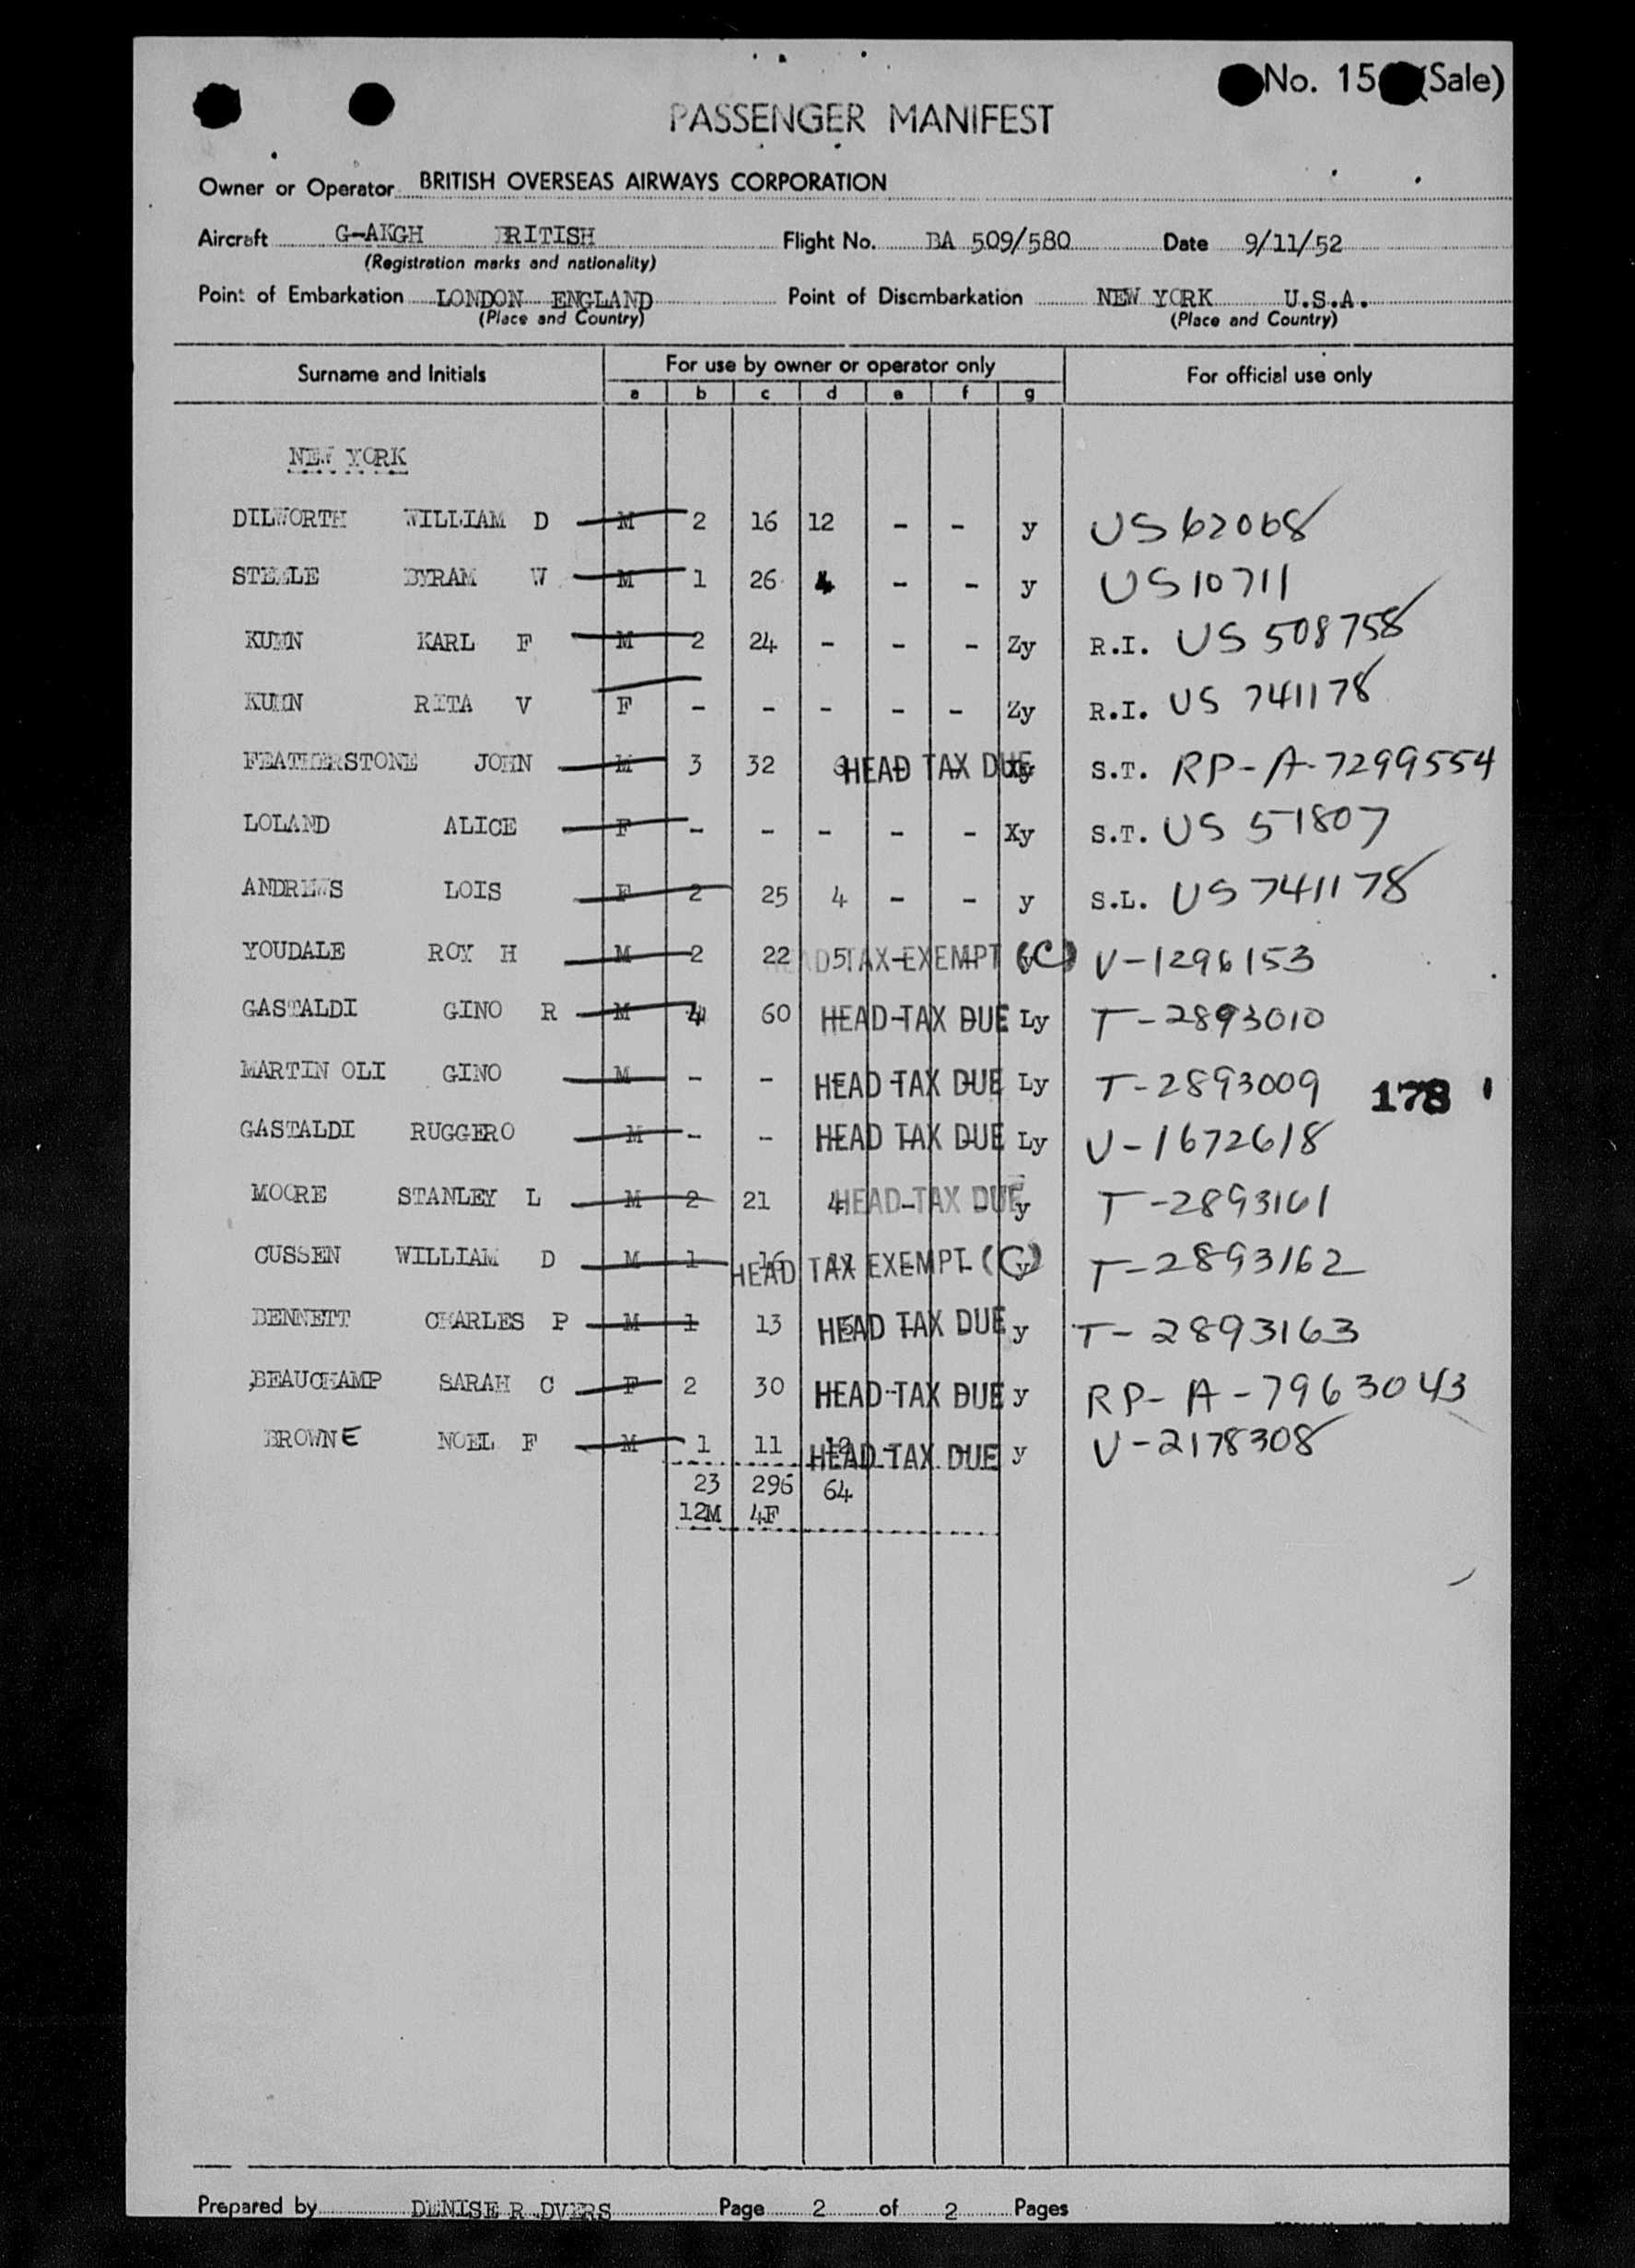 No. 15 (Sale)
PASSENGER MANIFEST
Owner or Operator BRITISH OVERSEAS AIRWAYS CORPORATION
Aircraft G-AKGH BRITISH Flight No. BA 509/580 Date 9/11/52
(Registration marks and nationality)
Point of Embarkation LONDON ENGLAND Point of Disembarkation NEW YORK U.S.A.
(Place and Country) (Place and Country)
Surname and Initials For use by owner or operator only For official use only
a b c d e f g
NEW YORK
DILWORTH WILLIAM D M 2 16 12 - - y US 62068
STEELE BYRAM W M 1 26 4 - - y US 10711
KUHN KARL F M 2 24 - - - Zy R.I. US 508758
KUHN RITA V F - - - - - Zy R.I. US 741178
FEATHERSTONE JOHN M 3 32 HEAD TAX DUE S.T. RP-A-7299554
LOLAND ALICE F - - - - - Xy S.T. US 51807
ANDREWS LOIS F 2 25 4 - - y S.L. US 741178
YOUDALE ROY H M 2 22 5 HEAD TAX EXEMPT (C) V-1296153
GASTALDI GINO R M 4 60 HEAD TAX DUE Ly T-2893010
MARTIN OLI GINO M - - HEAD TAX DUE Ly T-2893009 178
GASTALDI RUGGERO M - - HEAD TAX DUE Ly V-1672618
MOORE STANLEY L M 2 21 4 HEAD TAX DUE y T-2893161
CUSSEN WILLIAM D M 1 16 HEAD TAX EXEMPT (C) y T-2893162
BENNETT CHARLES P M 1 13 5 HEAD TAX DUE y T-2893163
BEAUCHAMP SARAH C F 2 30 HEAD TAX DUE y RP-A-7963043
BROWNE NOEL F M 1 11 12 HEAD TAX DUE y V-2178308
23 296 64
12M 4F
Prepared by DENISE R DVERS Page 2 of 2 Pages